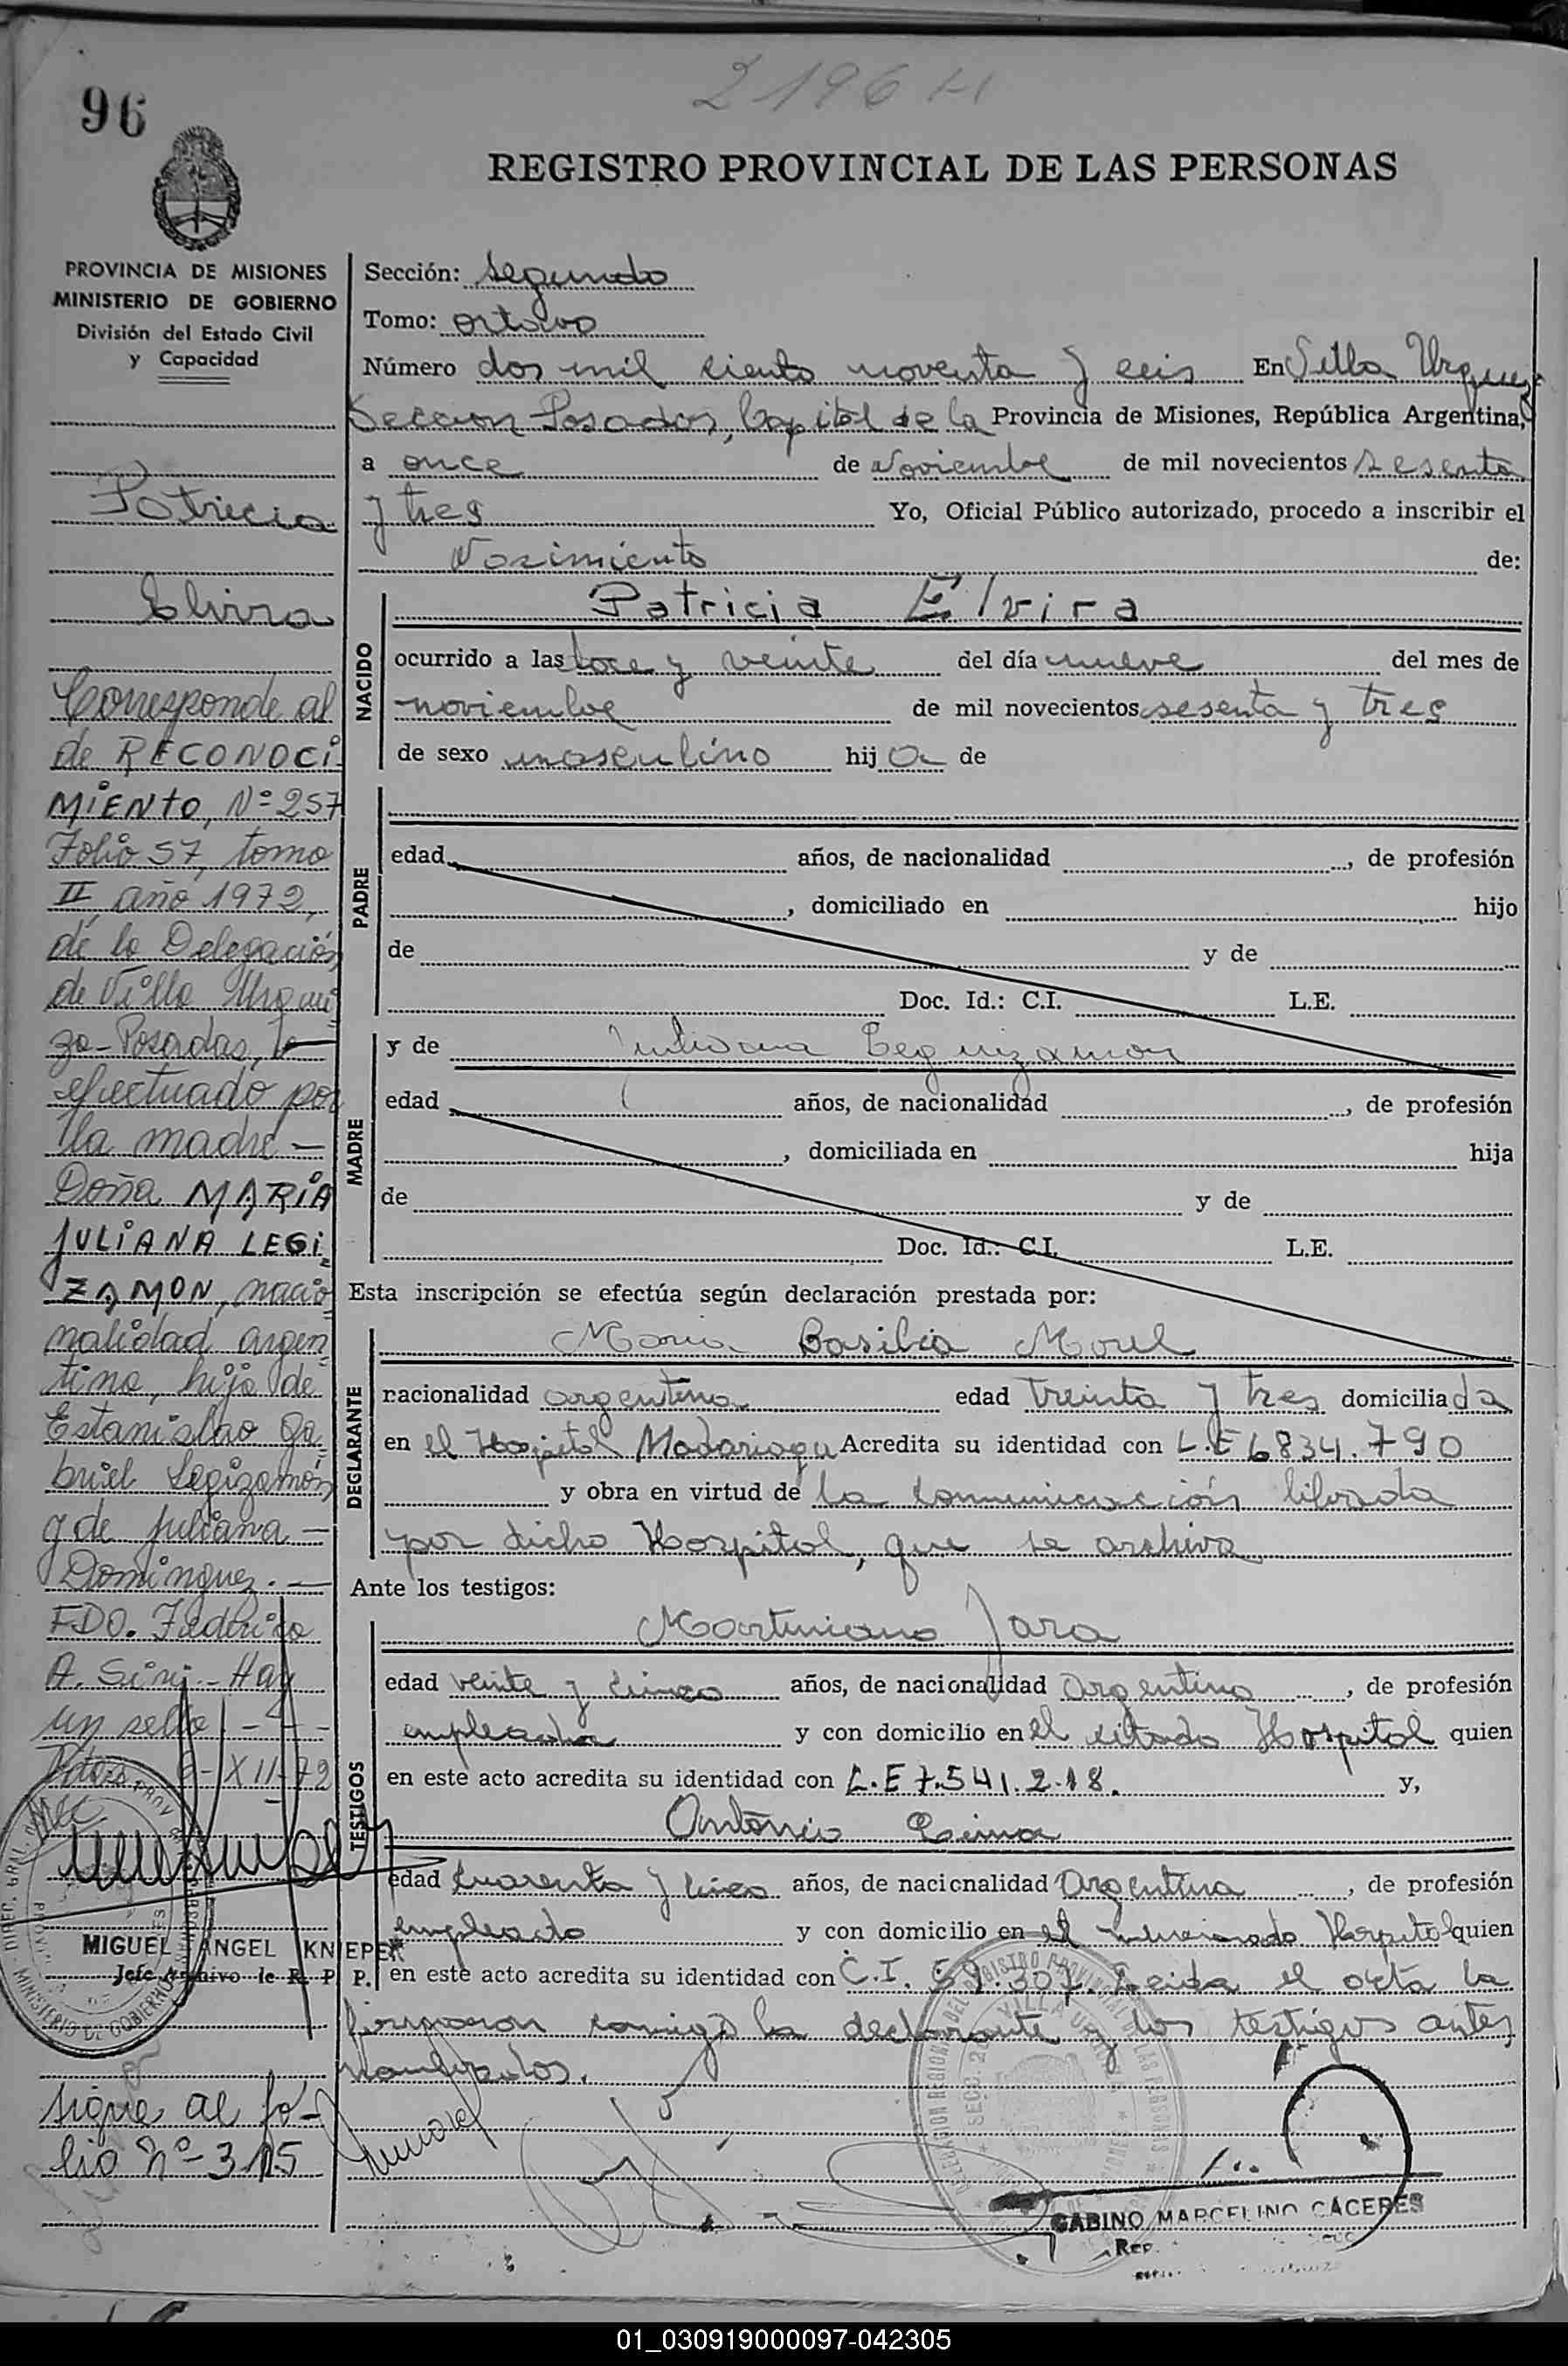 2196 H
96
REGISTRO PROVINCIAL DE LAS PERSONAS
PROVINCIA DE MISIONES
MINISTERIO DE GOBIERNO
División del Estado Civil
y Capacidad
Patricia
Elvira
Corresponde al
de RECONOCI
MIENTO, Nº 257
Folio 57, tomo
II año 1972,
de la Delegación
de Villa Urqui
za-Posadas,
efectuado por
la madre —
Doña MARIA
JULIANA LEGI
ZAMON, nacio
nalidad argen
tina, hija de
Estanislao Ga
briel Legizamón
y de Juliana —
Dominguez. —
FDO. Federico
A. Sini.- Hay
un sello. - -
XII-72
MIGUEL ANGEL KNIEPER
Jefe Archivo de R. P. P.
sigue al fo-
lio nº 315
Sección: segundo
Tomo: octavo
Número dos mil ciento noventa y seis En Villa Urquiza
Seccion Posadas, Capital de la Provincia de Misiones, República Argentina,
a once de Noviembre de mil novecientos sesenta
y tres Yo, Oficial Público autorizado, procedo a inscribir el
Nacimiento de:
NACIDO
Patricia Elvira
ocurrido a las doce y veinte del día nueve del mes de
noviembre de mil novecientos sesenta y tres
de sexo masculino hij a de
PADRE
edad años, de nacionalidad , de profesión
, domiciliado en hijo
de y de
Doc. Id.: C.I. L.E.
MADRE
y de Juliana Leguizamon
edad años, de nacionalidad , de profesión
, domiciliada en hija
de y de
Doc. Id.: C.I. L.E.
Esta inscripción se efectúa según declaración prestada por:
DEGLARANTE
Maria Basilia Morel
racionalidad argentina edad treinta y tres domiciliada
en el Hospital Madariaga Acredita su identidad con L.E 6834.790
y obra en virtud de la comunicación librada
por dicho Hospital, que se archiva
Ante los testigos:
TESTIGOS
Martiniano Jara
edad veinte y cinco años, de nacionalidad Argentino , de profesión
empleado y con domicilio en el citado Hospital quien
en este acto acredita su identidad con L.E 7.541.218. y,
Antonio Lima
edad cuarenta y cinco años, de nacicnalidad Argentina , de profesión
empleado y con domicilio en el mencionado Hospital quien
en este acto acredita su identidad con C.I. 59.307. Leida el acta la
firmaron comigo la declarante y los testigos antes
nombrados.
GABINO MARCELINO CACERES
01_030919000097-042305